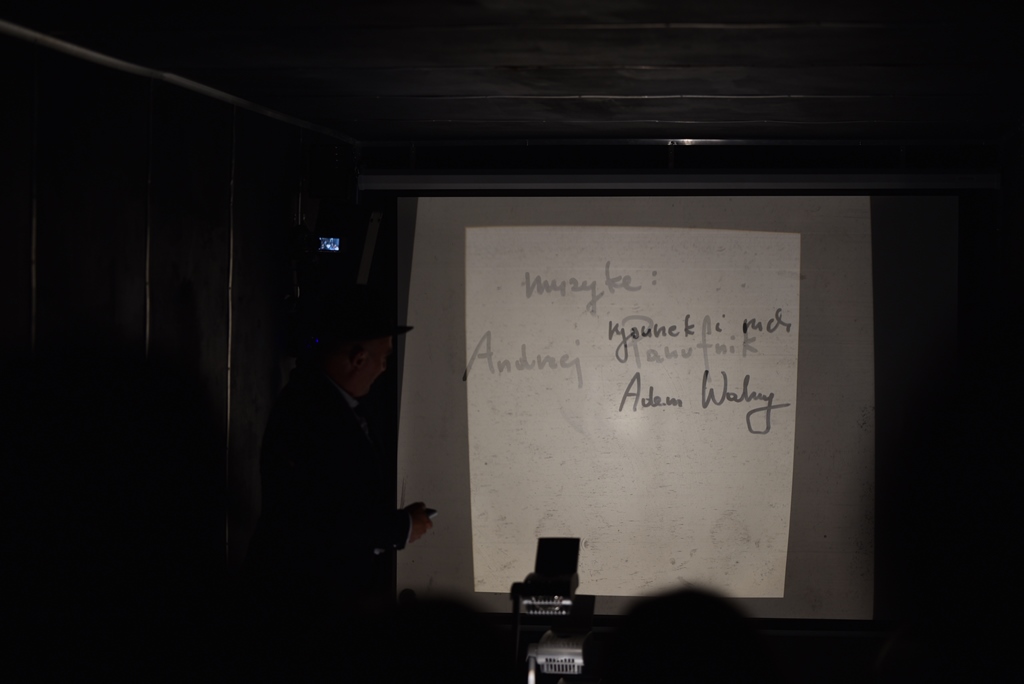 muzykę:
rysunek i ruch
Andrzej Panufnik
Adam Walny